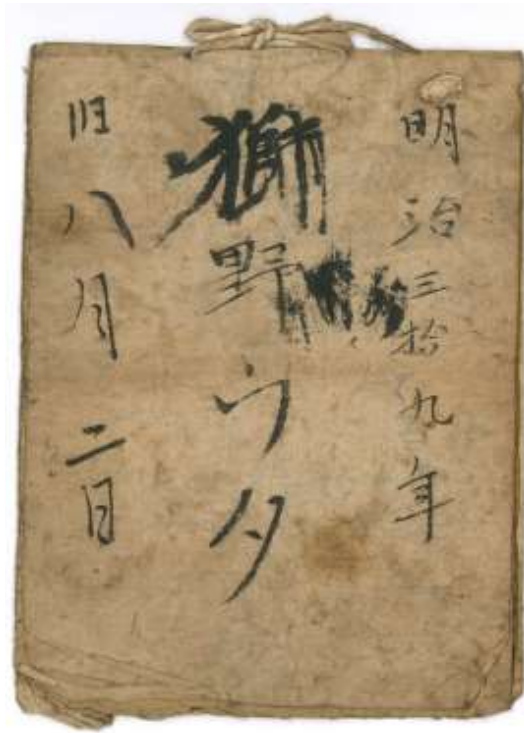 明治三拾九年
獅野ウタ
旧八月二日